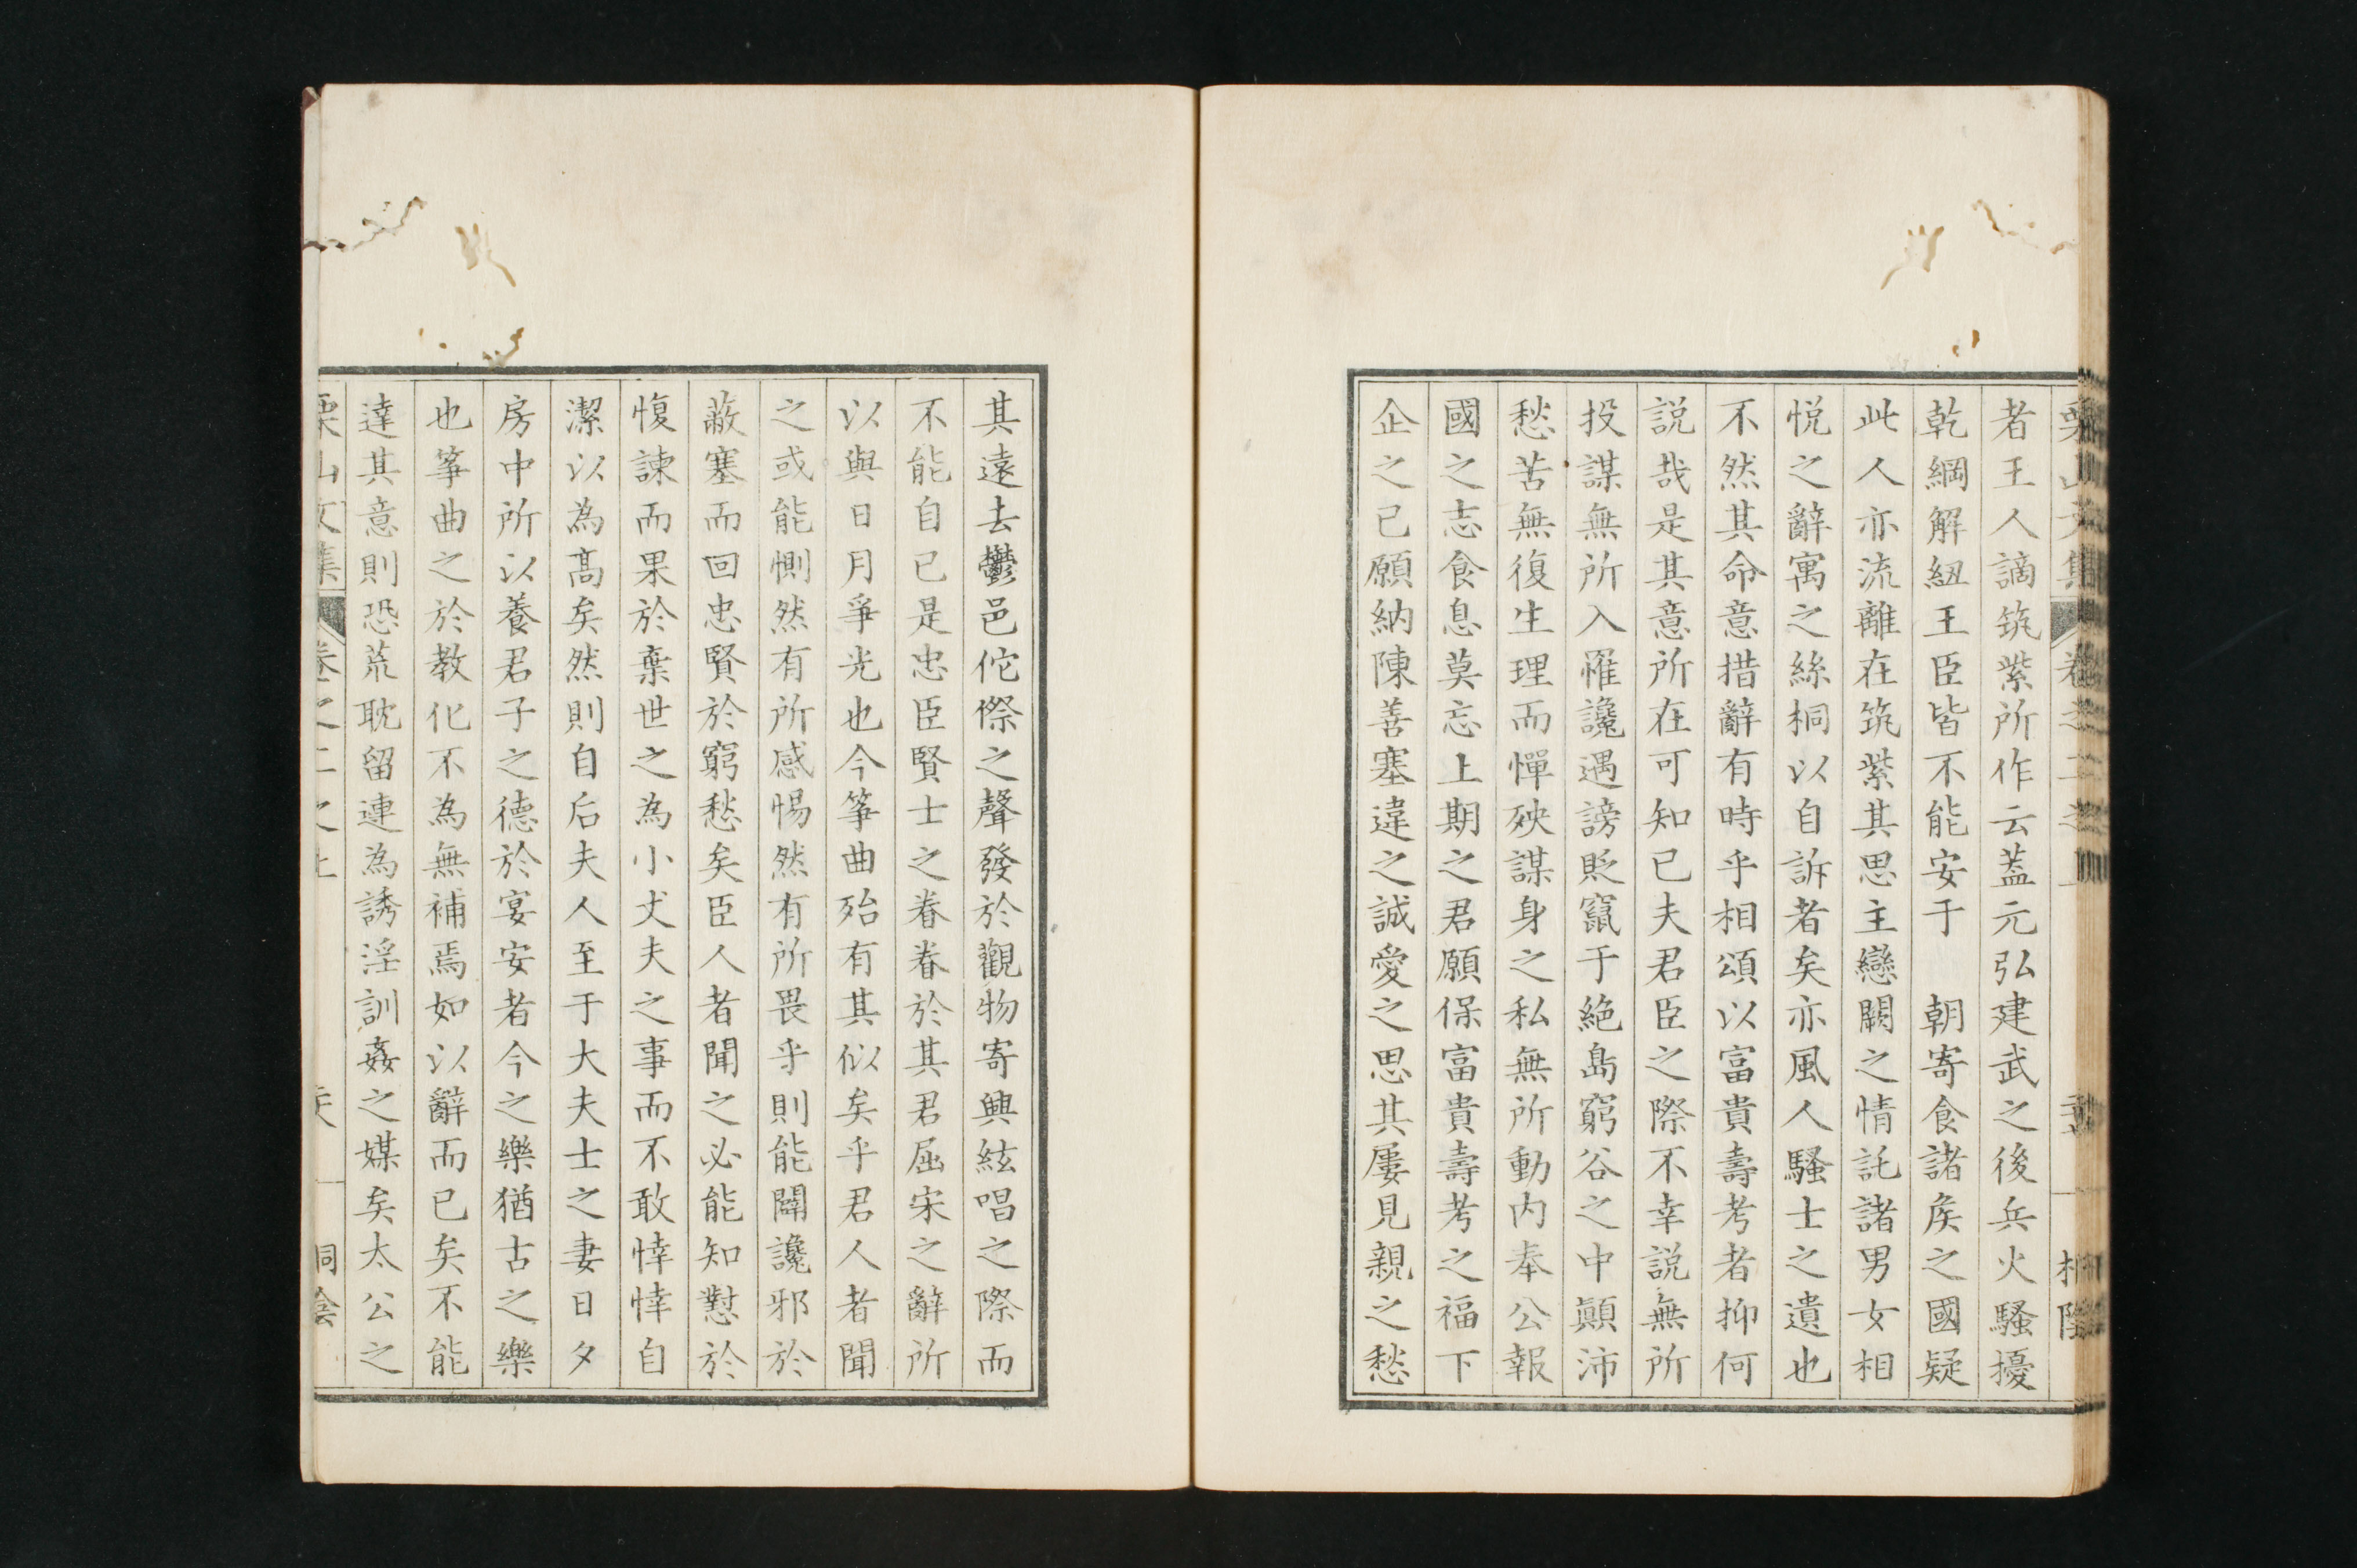 者王人謫筑紫所作云蓋元弘建武之後兵火騷擾
乾綱解紐王臣皆不能安于　朝寄食諸矦之國疑
此人亦流離在筑紫其思主戀闕之情託諸男女相
悦之辭寓之絲桐以自訴者矣亦風人騷士之遺也
不然其命意措辭有時乎相頌以富貴壽考者抑何
説哉是其意所在可知已夫君臣之際不幸説無所
投謀無所入罹讒遇謗貶竄于絶島窮谷之中顚沛
愁苦無復生理而憚殃謀身之私無所動内奉公報
國之志食息莫忘上期之君願保富貴壽考之福下
企之已願納陳善塞違之誠愛之思其屢見親之愁
其遠去鬱邑侘傺之聲發於觀物寄興絃唱之際而
不能自已是忠臣賢士之眷眷於其君屈宋之辭所
以與日月爭光也今箏曲殆有其似矣乎君人者聞
之或能惻然有所感惕然有所畏乎則能闢讒邪於
蔽塞而回忠賢於窮愁矣臣人者聞之必能知懟於
愎諫而果於棄世之為小丈夫之事而不敢悻悻自
潔以為髙矣然則自后夫人至于大夫士之妻日夕
房中所以養君子之德於宴安者今之樂猶古之樂
也箏曲之於教化不為無補焉如以辭而已矣不能
達其意則恐荒耽留連為誘淫訓姦之媒矣太公之
栗山文集　卷之二之上